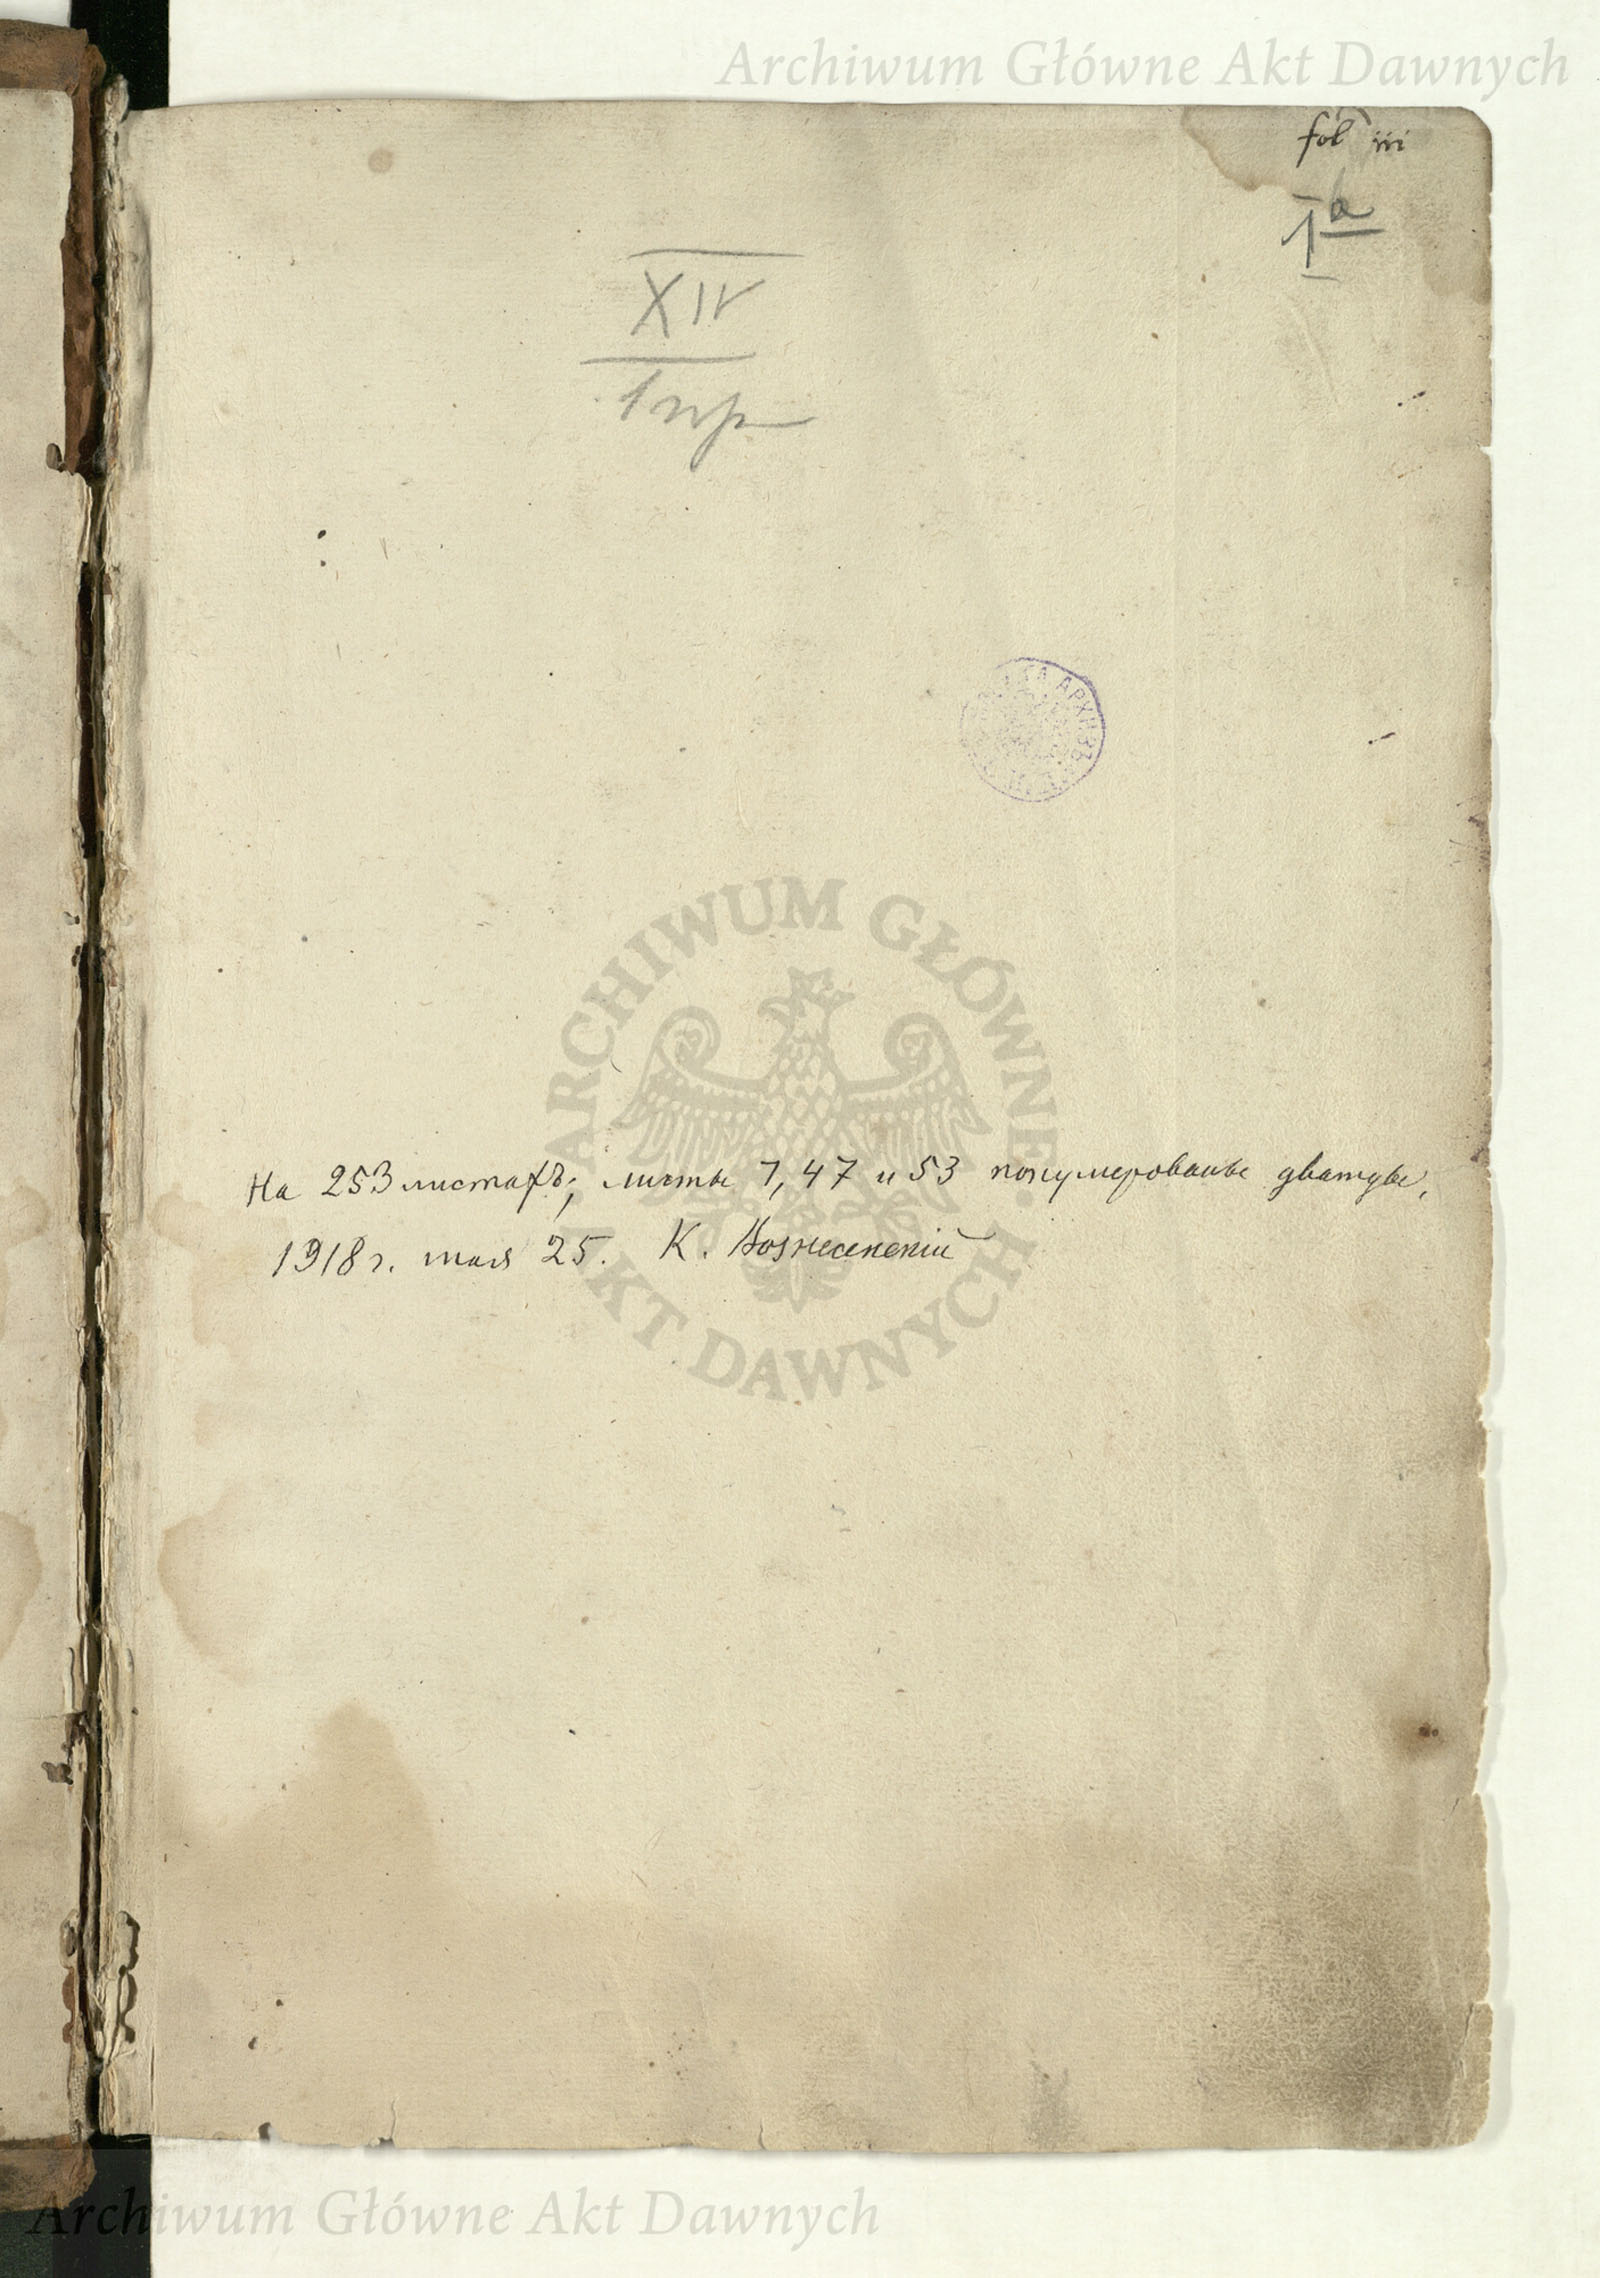 Archiwum Główne Akt Dawnych
fol iii
1a
XIV
1 пр
АРХИВЪ
ARCHIWUM GŁÓWNE
AKT DAWNYCH
На 253 листахъ; листы 7, 47 и 53 понумерованы дважды,
1918 г. мая 25. К. Вознесенскій
Archiwum Główne Akt Dawnych